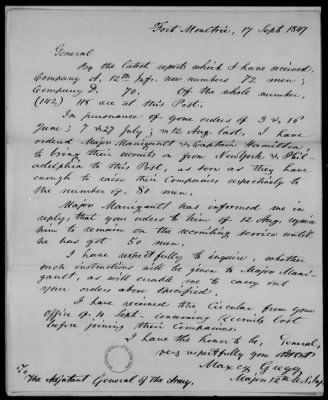 Fort Moultrie, 17 Sept. 1847
General
By the latest reports which I have received,
Company A, 12th Infy. now numbers 72 men;
Company D. 70. Of the whole number,
(142) 118 are at this Post.
In pursuance of your orders of 3 & 16
June; 7 & 27 July; & 12 Aug. last, I have
ordered Major Manigault & Captain Hamilton
to bring their recruits on from New York & Phil-
adelphia to this Post, as soon as they have
enough to raise their Companies respectively to
the number of 80 men.
Major Manigault has informed me in
reply, that your orders to him of 12 Aug. require
him to remain on the recruiting service until
he has got 50 men.
I have respectfully to inquire, whether
such instructions will be given to Major Mani-
gault, as will enable me to carry out
your orders above specified.
I have received the Circular from your
Office of 10 Sept. concerning Recruits lost
before joining their Companies.
I have the honor to be, General,
very respectfully you obt svt
Maxcy Gregg
Major 12th U.S. Inf.
To
The Adjutant General of the Army.